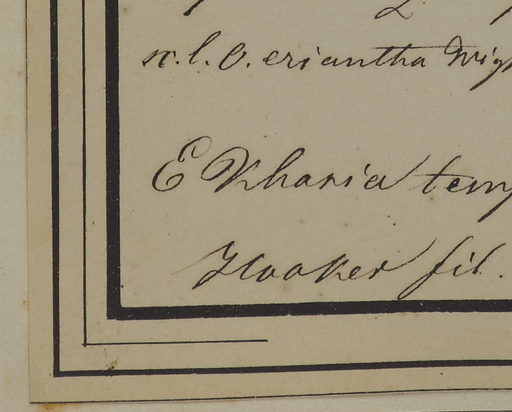 n. l. O. eriantha Wig
E Khasia temp
Hooker fil.